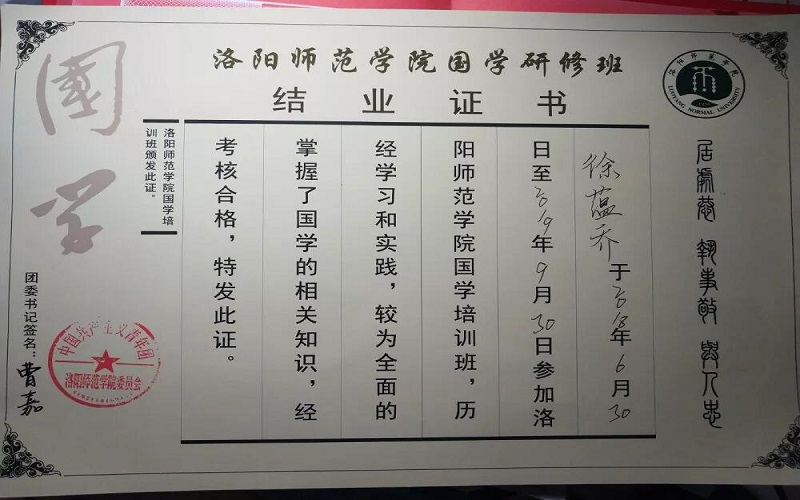 洛阳师范学院国学研修班
结业证书
洛阳师范学院
LUOYANG NORMAL UNIVERSITY
居處恭 執事敬 與人忠
徐蕴乔于2018年6月30
日至2019年9月30日参加洛
阳师范学院国学培训班，历
经学习和实践，较为全面的
掌握了国学的相关知识，经
考核合格，特发此证。
洛阳师范学院国学培
训班颁发此证。
國学
团委书记签名：曹嘉
中国共产主义青年团
洛阳师范学院委员会